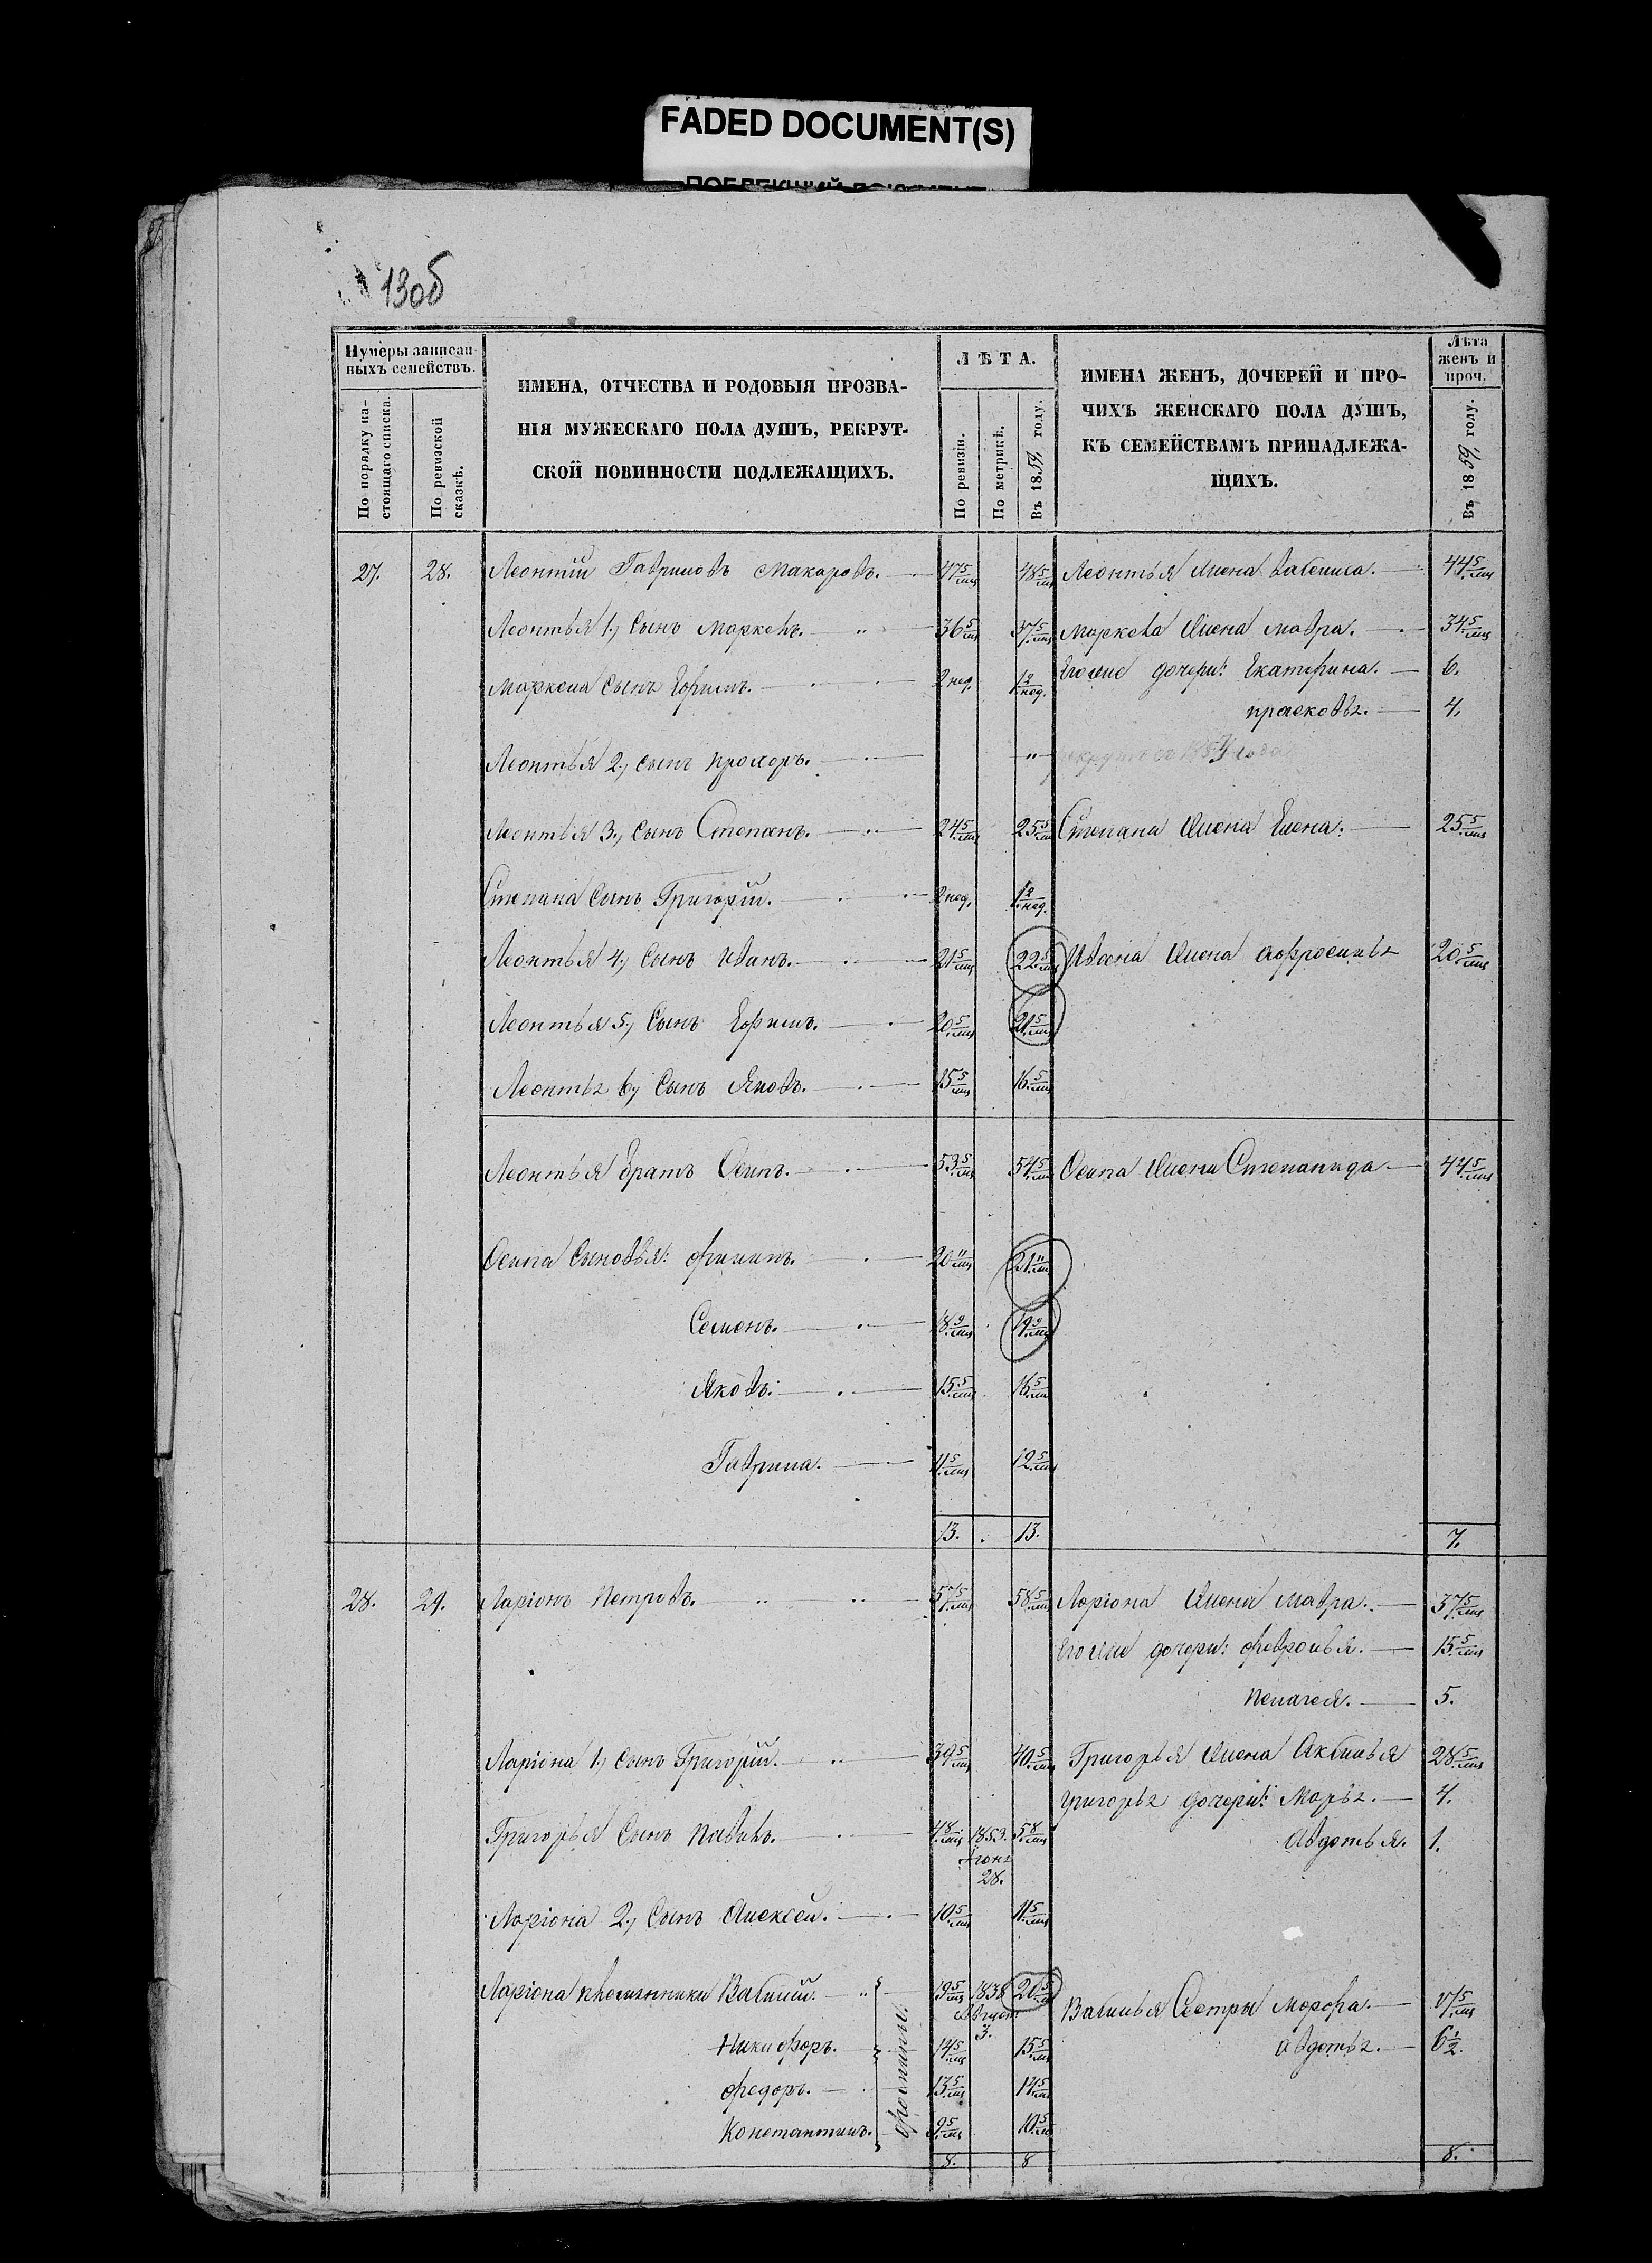 FADED DOCUMENT(S)
130б
Нумеры записан-
ныхъ семействъ.
По порядку на-
стоящаго списка.
По ревизской
сказкѣ.
ИМЕНА, ОТЧЕСТВА И РОДОВЫЯ ПРОЗВА-
НІЯ МУЖЕСКАГО ПОЛА ДУШЪ, РЕКРУТ-
СКОЙ ПОВИННОСТИ ПОДЛЕЖАЩИХЪ.
ЛѢТА.
По ревизіи.
По метрикѣ.
Въ 1859, году.
ИМЕНА ЖЕНЪ, ДОЧЕРЕЙ И ПРО-
ЧИХЪ ЖЕНСКАГО ПОЛА ДУШЪ,
КЪ СЕМЕЙСТВАМЪ ПРИНАДЛЕЖА-
ЩИХЪ.
Лѣта
женъ и
проч.
Въ 1859, году.
27. 28. Леонтій Гавриловъ Макаровъ. 47 5/мц 48 5/мц Леонтья жена Василиса. 44 5/мц
Леонтья 1, сынъ Маркелъ. 36 5/мц 37 5/мц Маркела жена Мавра. 34 5/мц
Маркела сынъ Ефимъ. 2 нед. 1 2/нед. Его же дочери: Екатерина. 6.
Прасковья. 4.
Леонтья 2, сынъ Прохоръ. "
Леонтья 3, сынъ Степанъ. 24 5/мц 25 5/мц Степана жена Елена. 25 5/мц
Степана сынъ Григорій. 2 нед. 1 2/нед.
Леонтья 4, сынъ Иванъ. 21 5/мц 22 5/мц Ивана жена Афросинья 20 5/мц
Леонтья 5, сынъ Ефимъ. 20 5/мц 21 5/мц
Леонтья 6, сынъ Яковъ. 15 5/мц 16 5/мц
Леонтья братъ Осипъ. 53 5/мц 54 5/мц Осипа жена Степанида 44 5/мц
Осипа сыновья: Филипъ. 20 11/мц 21 11/мц
Семенъ. 18 9/мц 19 9/мц
Яковъ. 15 5/мц 16 5/мц
Гаврила. 11 5/мц 12 5/мц
13. 13. 7.
28. 29. Ларіонъ Петровъ. 57 5/мц 58 5/мц Ларіона жена Мавра. 37 5/мц
Его же дочери: Февронья. 15 5/мц
Пелагея. 5.
Ларіона 1, сынъ Григорій. 39 5/мц 40 5/мц Григорья жена Акулина 28 5/мц
Григорья дочери: Марья. 4.
Григорья сынъ Павелъ. 4 8/мц 1853. 5 8/мц Авдотья. 1.
28.
Ларіона 2, сынъ Алексей. 10 5/мц 11 5/мц
Ларіона племянники Василій. 19 5/мц 1838 20 5/мц Василья сестры Марфа. 17 5/мц
Август. 3.
Никифоръ. 14 5/мц 15 5/мц Авдотья. 6 1/2.
Федоръ. 13 5/мц 14 5/мц
Константинъ. 9 5/мц 10 5/мц
8. 8 8.